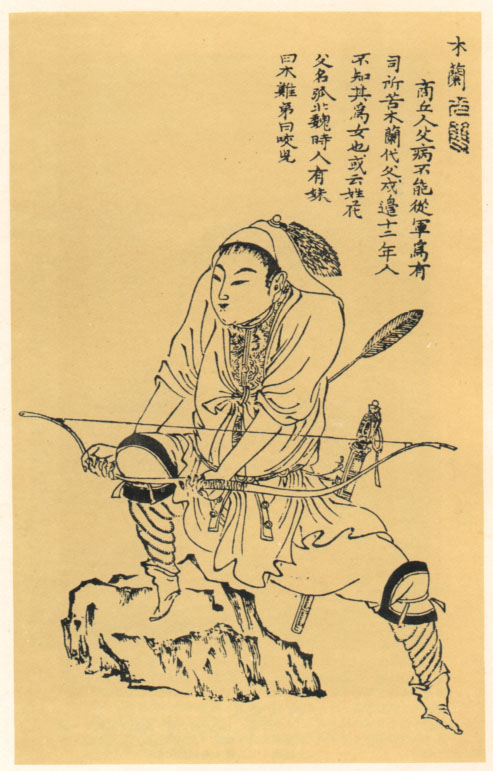 木蘭
商丘人父病不能從軍為有
司所苦木蘭代父戍邊十二年人
不知其為女也或云姓花
父名弧北魏時人有妹
曰木難弟曰咬児